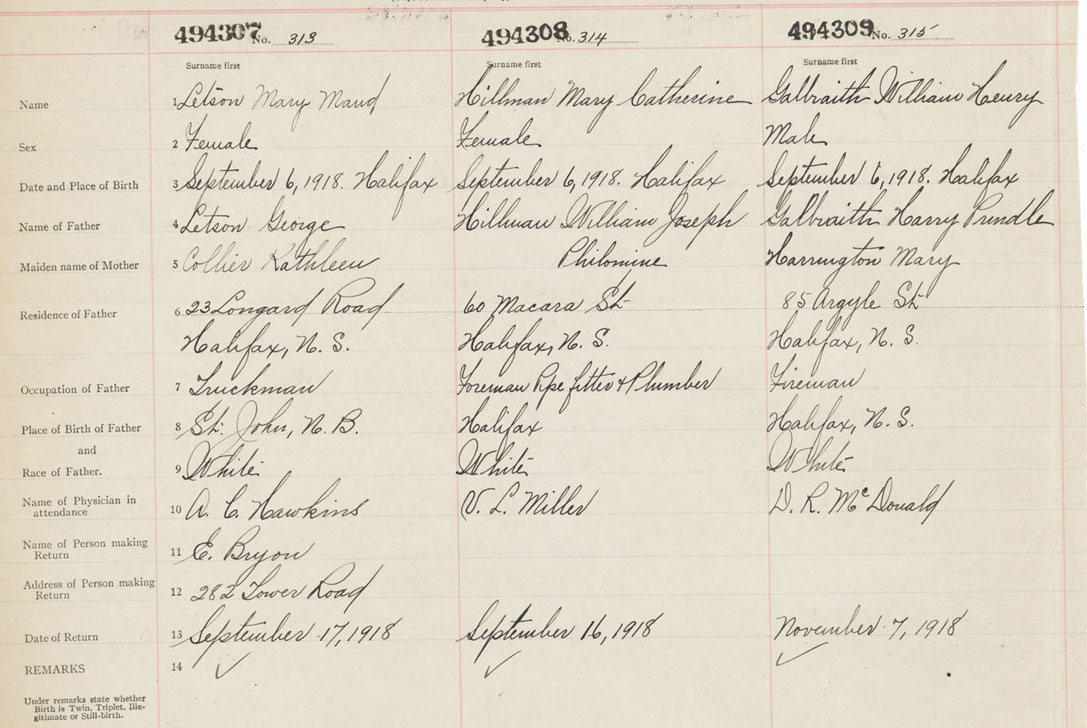 494307 No. 313 494308 No. 314 494309 No. 315
Surname first Surname first Surname first
Name 1 Letson Mary Maud Hillman Mary Catherine Galbraith William Henry
Sex 2 Female Female Male
Date and Place of Birth 3 September 6, 1918. Halifax September 6, 1918. Halifax September 6, 1918. Halifax
Name of Father 4 Letson George Hillman William Joseph Galbraith Harry Prindle
Maiden name of Mother 5 Collier Kathleen Philomine Harrington Mary
Residence of Father 6 23 Longard Road 60 Macara St 85 Argyle St
Halifax, N. S. Halifax, N. S. Halifax, N. S.
Occupation of Father 7 Truckman Foreman Pipe fitter & Plumber Fireman
Place of Birth of Father 8 St. John, N. B. Halifax Halifax, N. S.
and
Race of Father. 9 White White White
Name of Physician in
attendance 10 A. C. Hawkins V. L. Miller D. R. McDonald
Name of Person making
Return 11 E. Bryon
Address of Person making
Return 12 282 Tower Road
Date of Return 13 September 17, 1918 September 16, 1918 November 7, 1918
REMARKS 14 ✓ ✓ ✓
Under remarks state whether
Birth is Twin, Triplet, Ille-
gitimate or Still-birth.